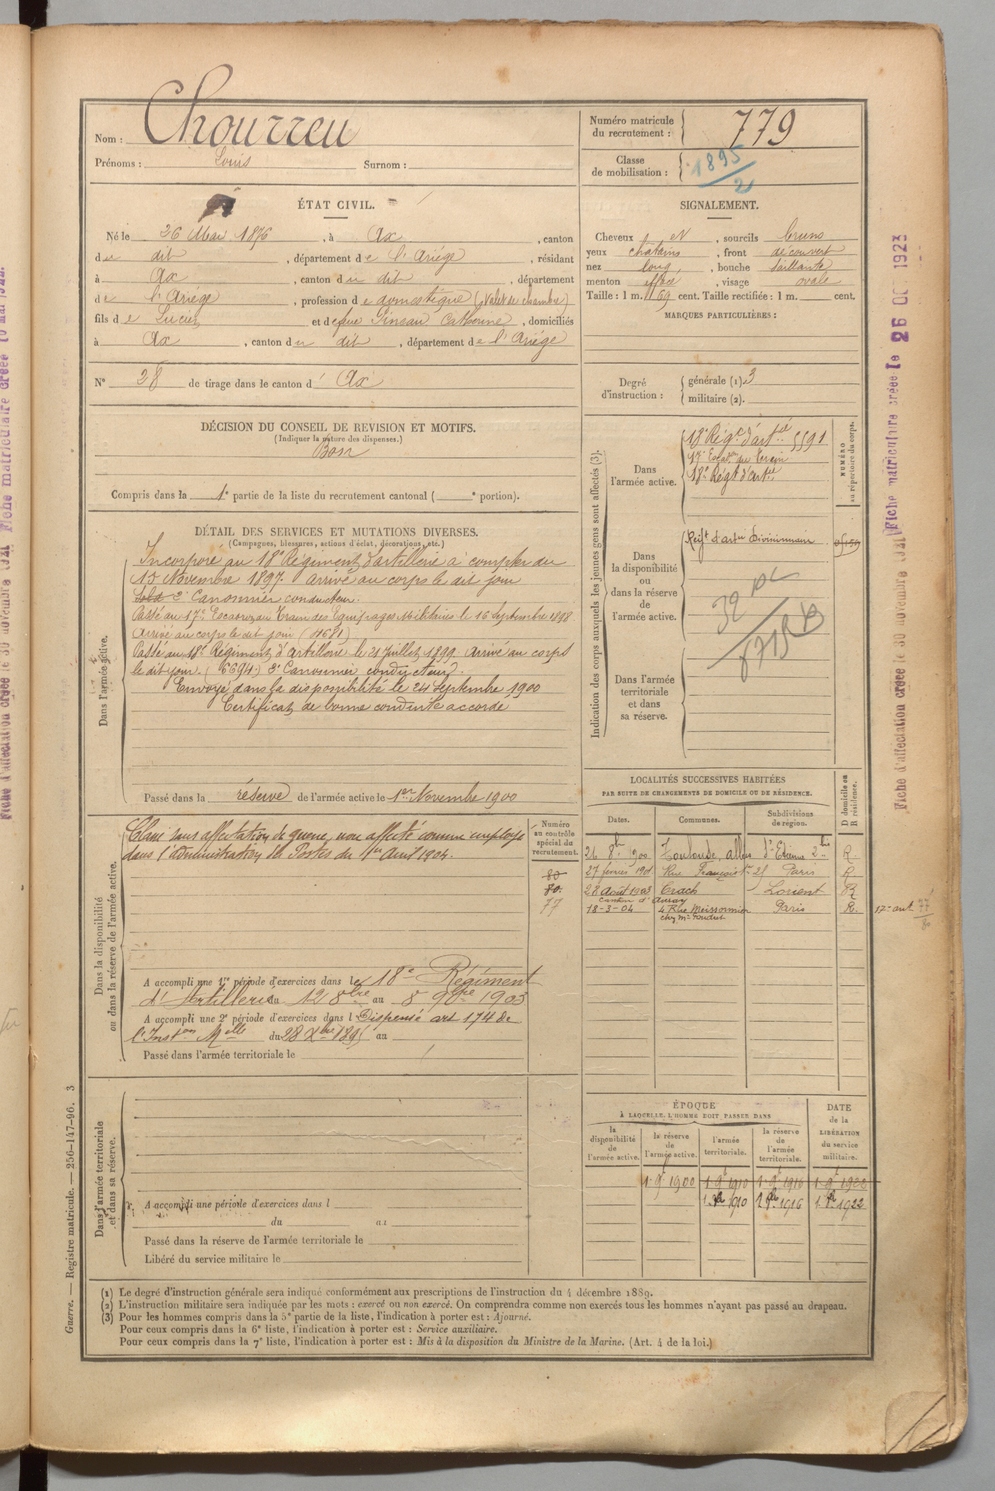 Nom : Chourreu
Prénoms : Louis Surnom :
Numéro matricule du recrutement : 779
Classe de mobilisation : 1895/2
ÉTAT CIVIL.
Né le 26 Mai 1876, à Ax, canton
du dit, département de l'Ariège, résidant
à Ax, canton du dit, département
de l'Ariège, profession de domestique (Valet de chambre)
fils de Lucien et de feue Pineau Catherine, domiciliés
à Ax, canton du dit, département de l'Ariège
N° 28 de tirage dans le canton d' Ax
SIGNALEMENT.
Cheveux et sourcils bruns
yeux châtains, front découvert
nez long, bouche saillante
menton effacé, visage ovale
Taille : 1 m. 69 cent. Taille rectifiée : 1 m. cent.
MARQUES PARTICULIÈRES :
Degré d'instruction : générale (1). 3
militaire (2).
DÉCISION DU CONSEIL DE REVISION ET MOTIFS.
(Indiquer la nature des dispenses.)
Bon
Compris dans la 1e partie de la liste du recrutement cantonal ( e portion).
DÉTAIL DES SERVICES ET MUTATIONS DIVERSES.
(Campagnes, blessures, actions d'éclat, décorations, etc.)
Dans l'armée active.
Incorporé au 18e Régiment d'artillerie à compter du
15 Novembre 1897. arrivé au corps le dit jour
2e Canonnier conducteur.
Passé au 17e Escadron du Train des Equipages Militaires le 16 Septembre 1898
Arrivé au corps le dit jour (11681)
Passé au 18e Régiment d'artillerie le 21 juillet 1899 Arrivé au corps
le dit jour. (6694) 2e Canonnier conducteur.
Envoyé dans la disponibilité le 24 septembre 1900
Certificat de bonne conduite accordé
Passé dans la réserve de l'armée active le 1er Novembre 1900
Indication des corps auxquels les jeunes gens sont affectés (3).
NUMÉRO au répertoire du corps.
Dans l'armée active.
18e Régt d'artie 5591
17e Escadon du Train
18e Régt d'artie
Dans la disponibilité ou dans la réserve de l'armée active.
Régt d'artie divisionnaire
Dans l'armée territoriale et dans sa réserve.
LOCALITÉS SUCCESSIVES HABITÉES
PAR SUITE DE CHANGEMENTS DE DOMICILE OU DE RÉSIDENCE.
Dates. Communes. Subdivisions de région. D domicile ou R résidence.
26 8bre 1900 Toulouse, allées St Etienne R.
27 février 1901 Rue François 1er 25 Paris R.
28 Août 1903 Crach Lorient R
canton d'Auray
18-3-04 4 Rue Meissonnier Paris R.
Dans la disponibilité ou dans la réserve de l'armée active.
Numéro au contrôle spécial du recrutement.
80
80.
77
Classé sans affectation de guerre, non affecté comme employé
dans l'administration des Postes du 1er Avril 1904.
A accompli une 1re période d'exercices dans le 18e Régiment
d'Artillerie du 12 8bre au 8 9bre 1903
A accompli une 2e période d'exercices dans l Dispensé art 174 de
l'Inston Melle du 28 Xbre 1895 au
Passé dans l'armée territoriale le
Dans l'armée territoriale et dans sa réserve.
A accompli une période d'exercices dans l
du au
Passé dans la réserve de l'armée territoriale le
Libéré du service militaire le
ÉPOQUE
À LAQUELLE L'HOMME DOIT PASSER DANS
DATE de la LIBÉRATION du service militaire.
la disponibilité de l'armée active. la réserve de l'armée active. l'armée territoriale. la réserve de l'armée territoriale.
1 9 1900 1 9 1910 1 9 1916 1 9 1922
1910 1916 1922
(1) Le degré d'instruction générale sera indiqué conformément aux prescriptions de l'instruction du 4 décembre 1889.
(2) L'instruction militaire sera indiquée par les mots : exercé ou non exercé. On comprendra comme non exercés tous les hommes n'ayant pas passé au drapeau.
(3) Pour les hommes compris dans la 5e partie de la liste, l'indication à porter est : Ajourné.
Pour ceux compris dans la 6e liste, l'indication à porter est : Service auxiliaire.
Pour ceux compris dans la 7e liste, l'indication à porter est : Mis à la disposition du Ministre de la Marine. (Art. 4 de la loi.)
Guerre. — Registre matricule. — 256-147-96. 3
Fiche matriculaire créée le 26 OC 1923
Fiche d'affectation créée le 30 novembre 1921